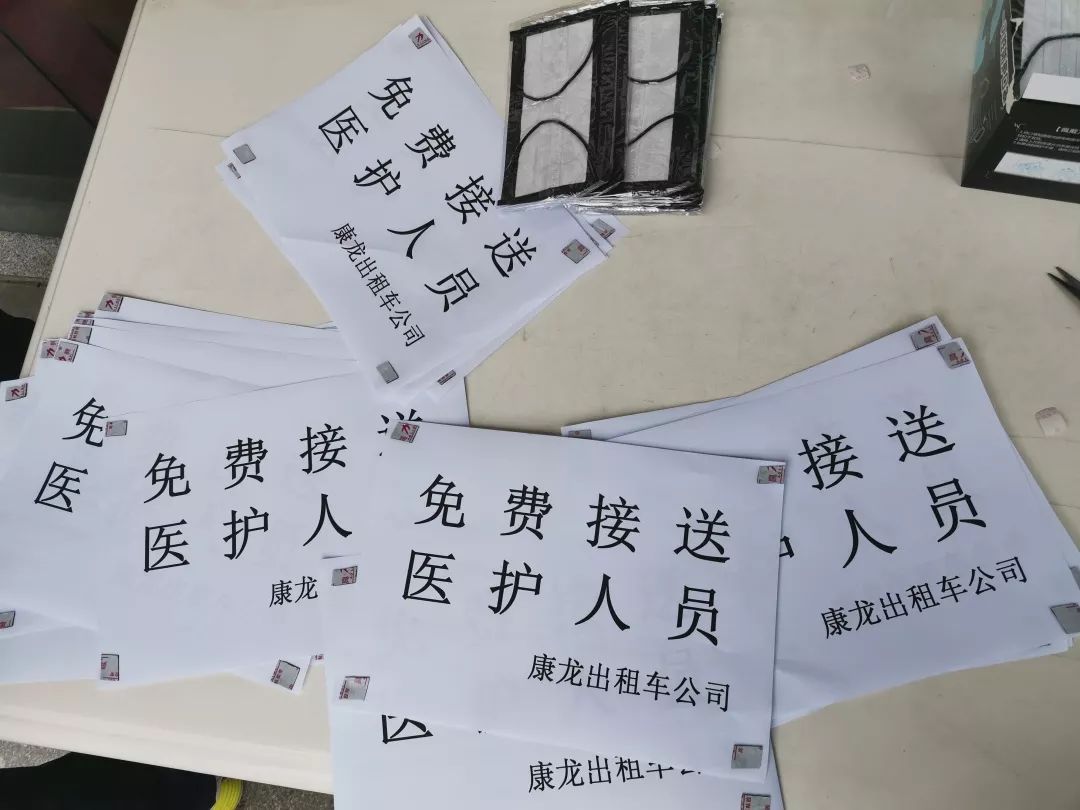 免费接送
医护人员
康龙出租车公司
免
医
免费接
医护人
康龙
送
免费接送
医护人员
康龙出租车公司
接送
人员
康龙出租车公司
医
康龙出租车公